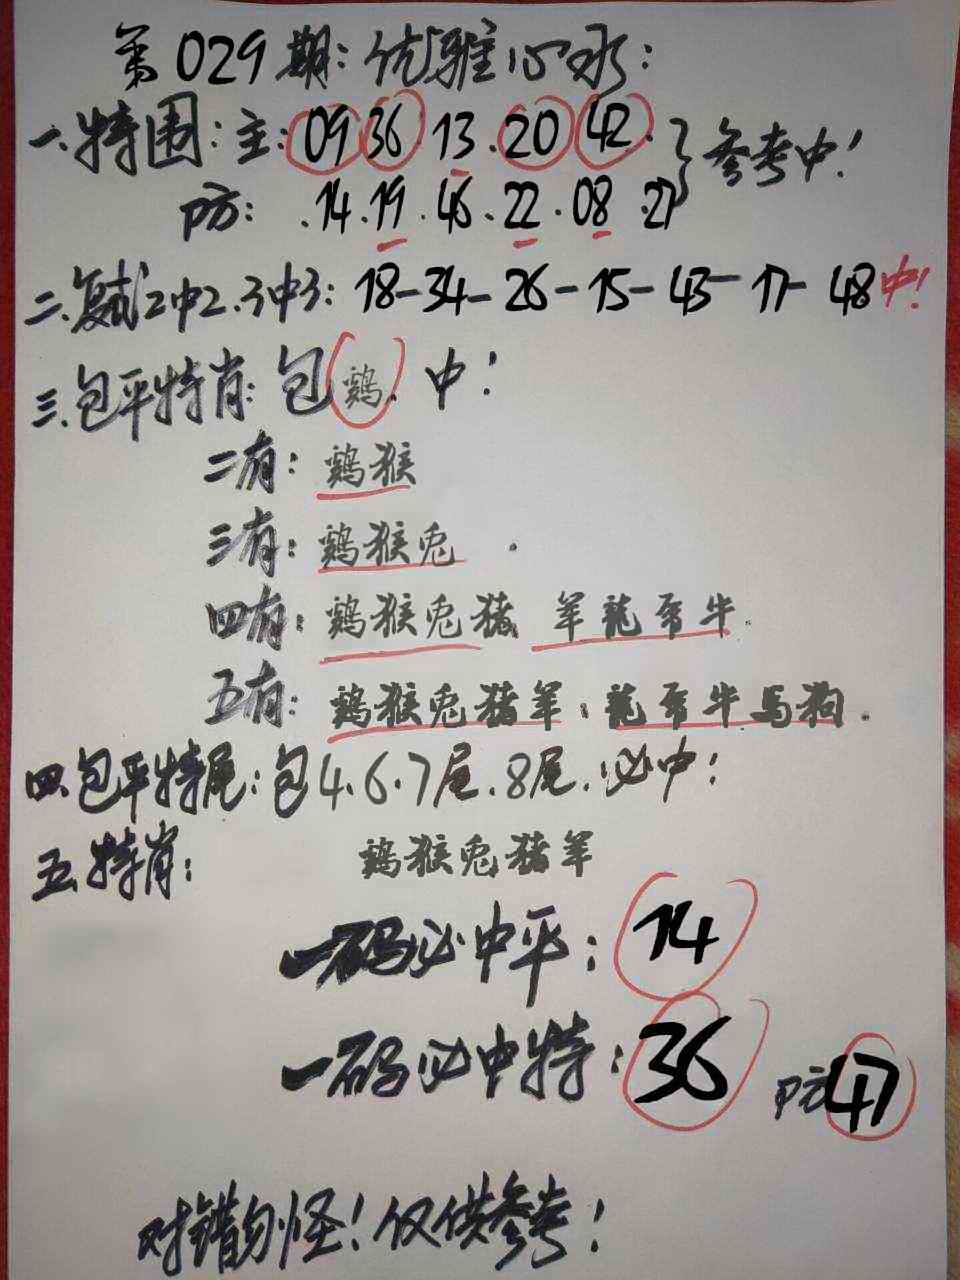 第029期:优雅心水:
一.特围:主:09 36.13.20 42.}参考中!
防:.14.19.46.22.08.27
二.复试2中2.3中3:18-34-26-15-43-17-48中!
三.包平特肖:包鷄.中!
二有:鷄猴
三有:鷄猴兎.
四有:鷄猴兎猪 羊龍虎牛.
五有:鷄猴兎猪羊:龍虎牛馬狗.
四.包平特尾:包4.6.7尾.8尾.必中!
五.特肖:鷄猴兎猪羊
一码必中平:14
一码必中特:36 防47
对错勿怪!仅供参考!